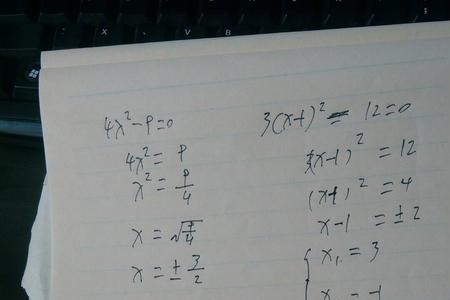 X V B
4x²-9=0
4x²=9
x²=9/4
x=√9/4
x=±3/2
3(x-1)²=12=0
3(x-1)²=12
(x-1)²=4
x-1=±2
{x₁=3
x=-1